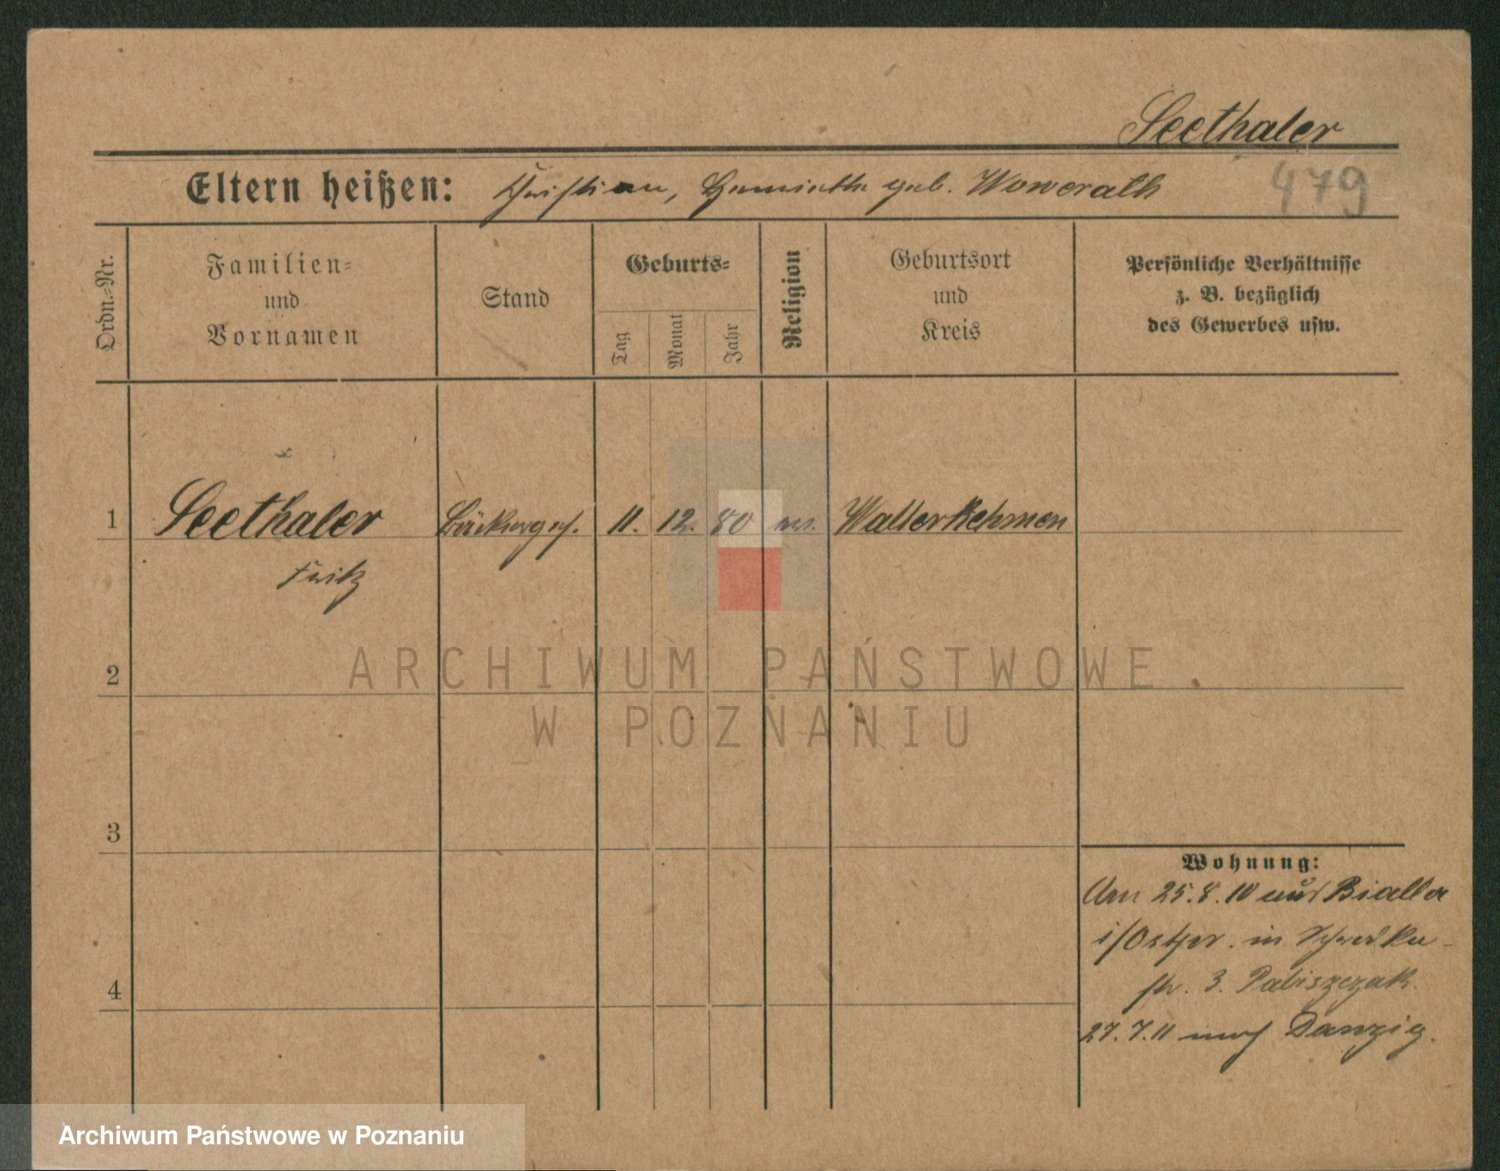 Seethaler
Eltern heißen: Christian, Henriette geb. Wowerath
479
Ordn.=Nr.
Familien=
und
Vornamen
Stand
Geburts=
Tag
Monat
Jahr
Religion
Geburtsort
und
Kreis
Persönliche Verhältnisse
z. B. bezüglich
des Gewerbes usw.
1 Seethaler Bäckerges. 11. 12. 80 ev. Walterkehmen
Fritz
2
3
4
Wohnung:
Am 25.8.10 aus Bialla
i/Ostpr. in
str. 3. Pabiszczak.
27.7.11 nach Danzig.
ARCHIWUM PAŃSTWOWE
W POZNANIU
Archiwum Państwowe w Poznaniu